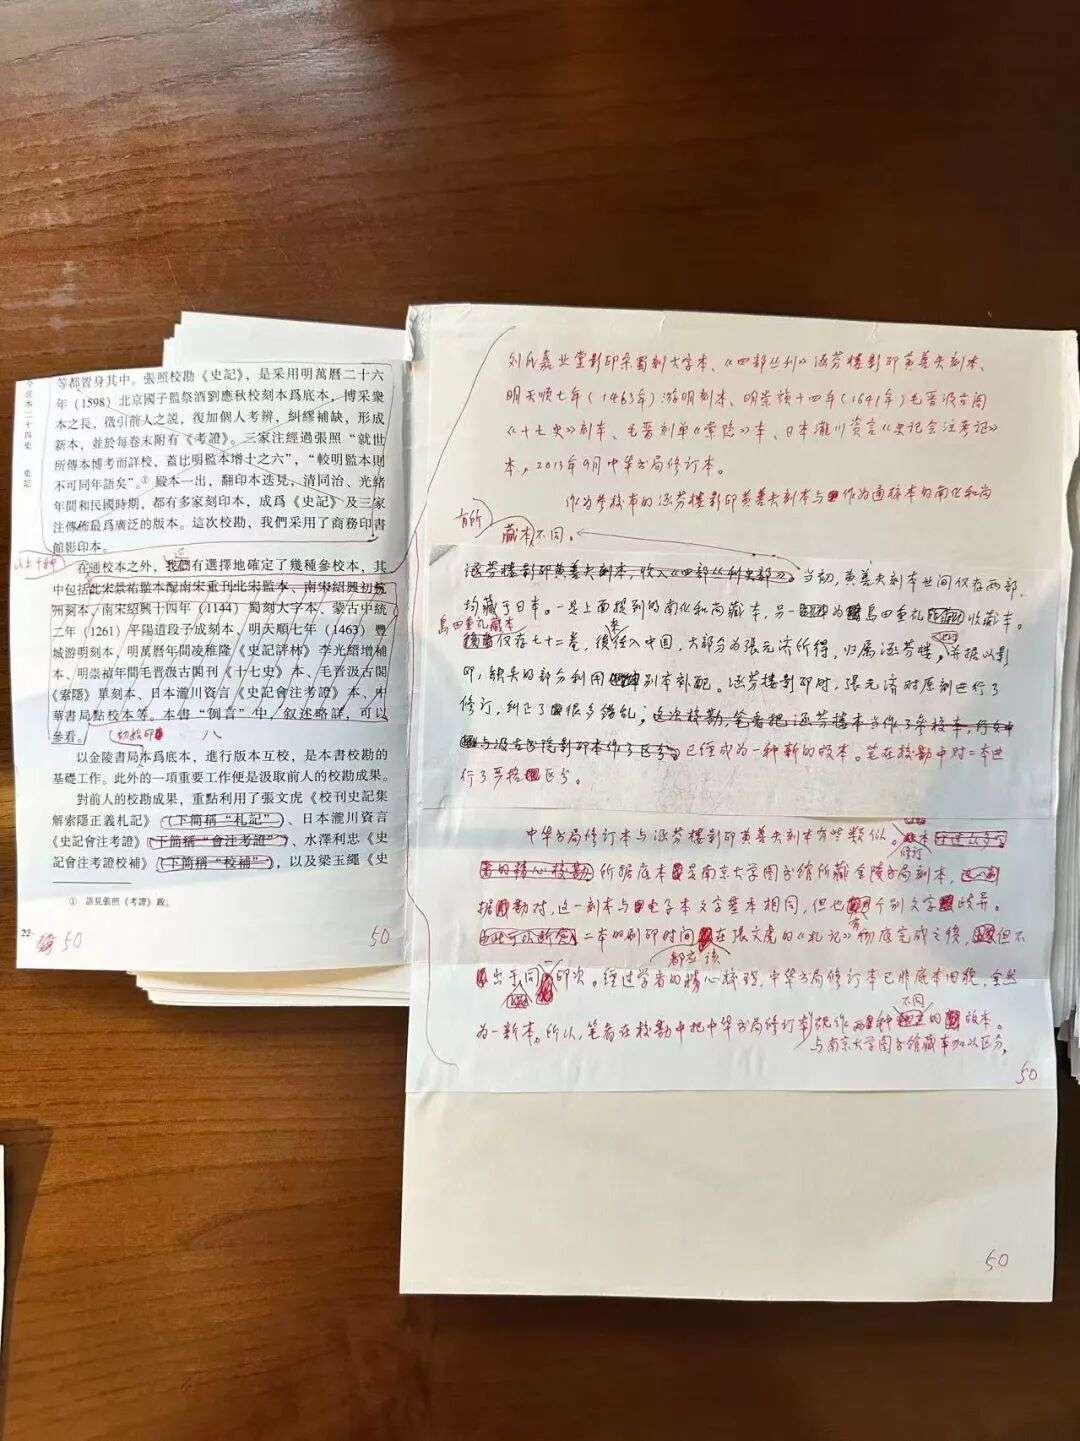 等都置身其中。張照校勘《史記》，是采用明萬曆二十六
年（1598）北京國子監祭酒劉應秋校刻本爲底本，博采衆
本之長，徵引前人之説，復加個人考辨，糾繆補缺，形成
新本，並於每卷末附有《考證》。三家注經過張照“就世
所傳本博考而詳校，蓋比明監本增十之六”，“較明監本則
不可同年語矣”。① 殿本一出，翻印本迭見，清同治、光緒
年間和民國時期，都有多家刻印本，成爲《史記》及三家
注傳佈最爲廣泛的版本。這次校勘，我們采用了商務印書
館影印本。
以上十種
在通校本之外，我們有選擇地確定了幾種參校本，其
中包括北宋景祐監本配南宋重刊北宋監本、南宋紹興初杭
州刻本、南宋紹興十四年（1144）蜀刻大字本、蒙古中統
二年（1261）平陽道段子成刻本、明天順七年（1463）豐
城游明刻本、明萬曆年間凌稚隆《史記評林》李光縉增補
本、明崇禎年間毛晋汲古閣刊《十七史》本、毛晋汲古閣
《索隱》單刻本、日本瀧川資言《史記會注考證》本、中
華書局點校本等。本書“例言”中，叙述略詳，可以
參看。
以金陵書局本爲底本，進行版本互校，是本書校勘的
基礎工作。此外的一項重要工作便是汲取前人的校勘成果。
對前人的校勘成果，重點利用了張文虎《校刊史記集
解索隱正義札記》（下簡稱“札記”）、日本瀧川資言
《史記會注考證》（下簡稱“會注考證”）、水澤利忠《史
記會注考證校補》（下簡稱“校補”），以及梁玉繩《史
① 語見張照《考證》跋。
22
50
50
刘氏嘉业堂影印宋蜀刻大字本、《四部丛刊》涵芬楼影印黄善夫刻本、
明天顺七年（1463年）游明刻本、明崇祯十四年（1641年）毛晋汲古阁
《十七史》刻本、毛晋刻单《索隐》本、日本瀧川資言《史记会注考证》
本，2013年9月中华书局修订本。
作为参校本的涵芬楼影印黄善夫刻本与作为通校本的南化和尚
有所
藏本不同。
涵芬楼影印黄善夫刻本，收入《四部丛刊史部》。当初，黄善夫刻本世间仅存两部，
均藏于日本。一是上面提到的南化和尚藏本，另一为島田重礼收藏本。
島田重礼藏本
仅存七十二卷，後流入中国，大部分为張元济所得，归属涵芬楼，并据以影
印，缺失的部分利用别本补配。涵芬楼影印时，張元济对原刻进行了
修订，纠正了很多错乱；这次校勘，笔者把涵芬楼本当作了参校本，
与汲古书院影印本作了区分。已经成为一种新的版本。笔者在校勘中对二本进
行了严格区分。
中华书局修订本与涵芬楼影印黄善夫刻本有些类似。
修订
本经过众多学
者的精心校勘所据底本是南京大学图书馆所藏金陵书局刻本，
据勘对，这一刻本与电子本文字基本相同，但也有个别文字歧异。
由此可以断定二本的刷印时间都应该在张文虎的《札记》彻底完成之後，但不
出于同一印次。经过学者的精心校理，中华书局修订本已非底本旧貌，全然
为一新本。所以，笔者在校勘中把中华书局修订本
不同
视作两种的版本。
与南京大学图书馆藏本加以区分，
50
50